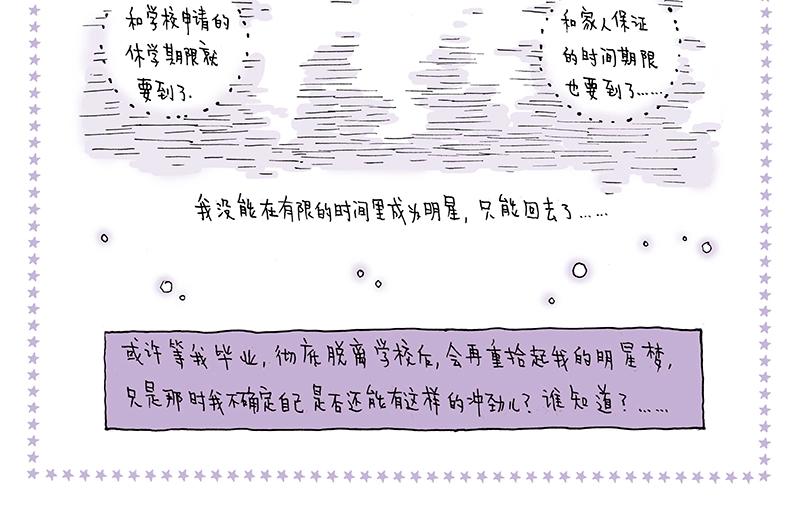 和学校申请的
休学期限就
要到了.
和家人保证
的时间期限
也要到了……
我没能在有限的时间里成为明星，只能回去了……
或许等我毕业，彻底脱离学校后，会再重拾起我的明星梦，
只是那时我不确定自己是否还能有这样的冲劲儿？谁知道？……